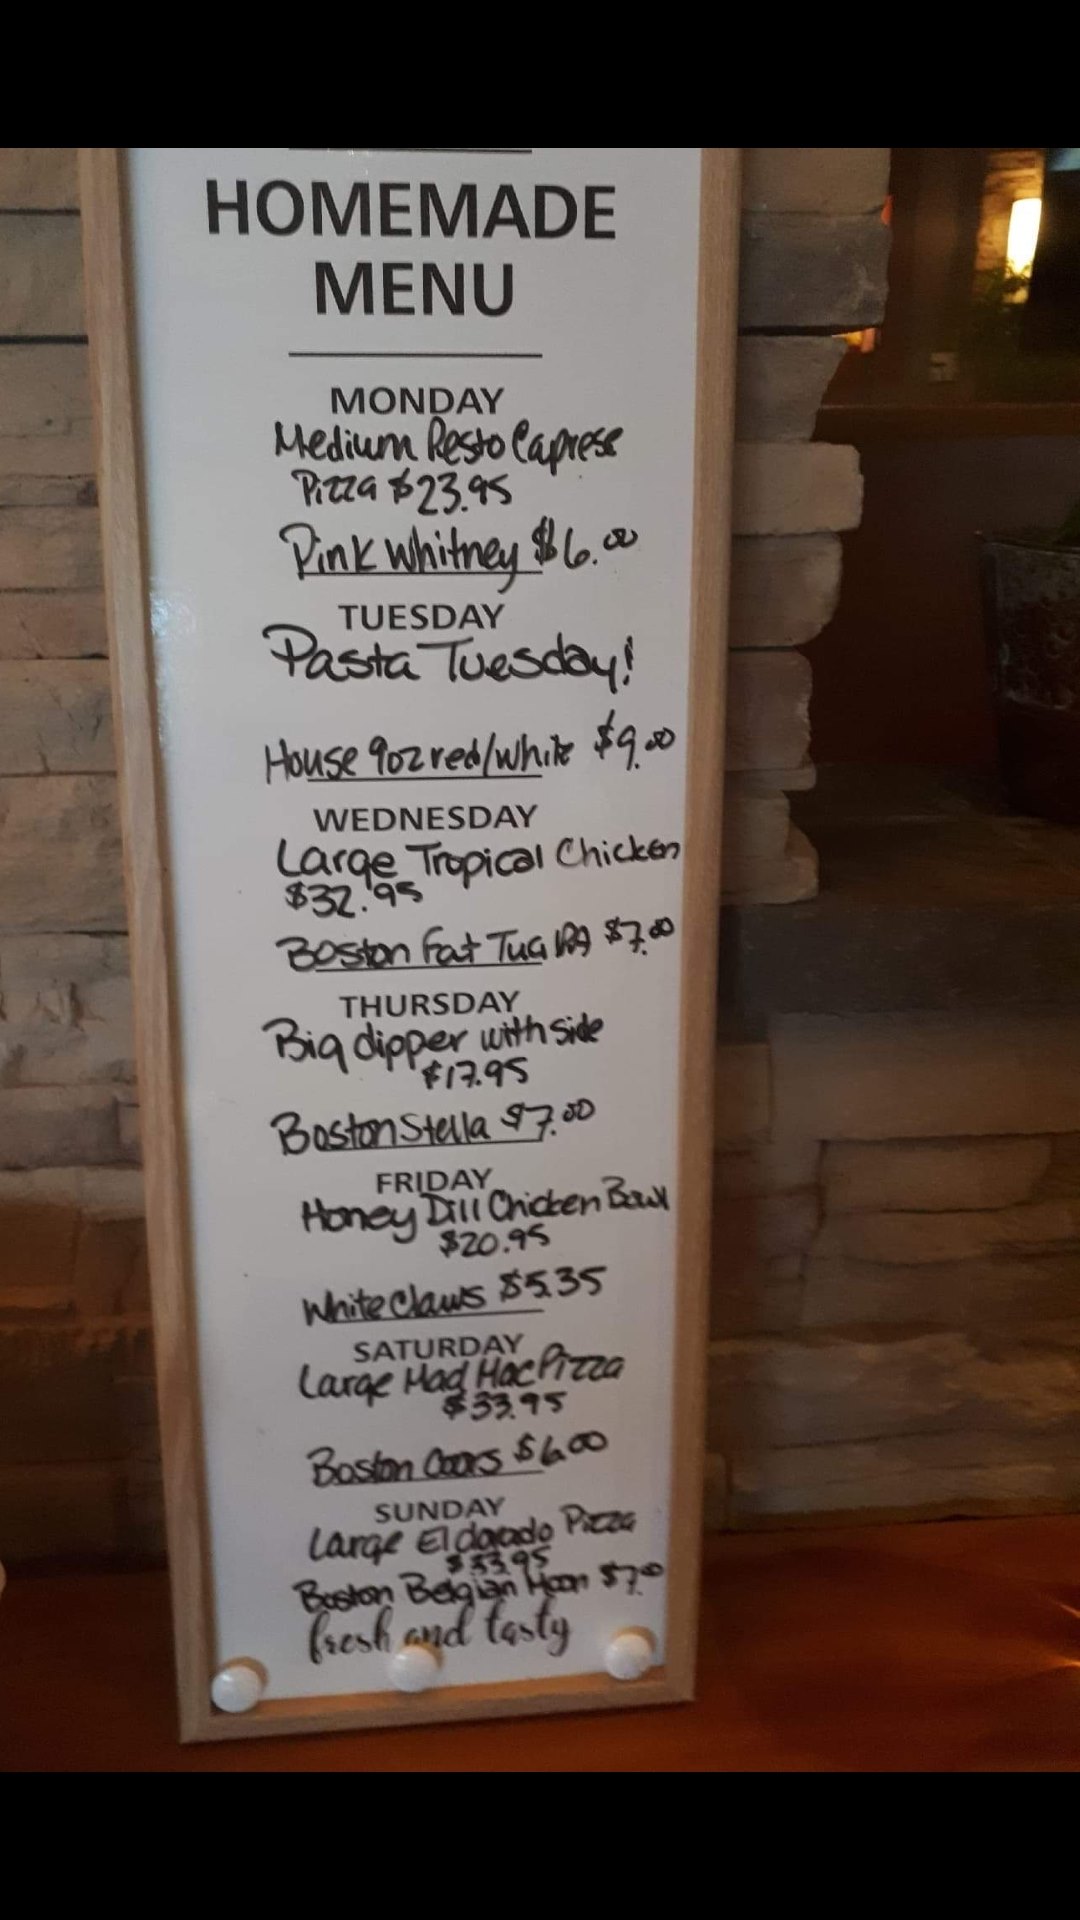 HOMEMADE
MENU
MONDAY
Medium Resto Caprese
Pizza $23.95
Pink Whitney $6.00
TUESDAY
Pasta Tuesday!
House 9oz red/white $9.00
WEDNESDAY
Large Tropical Chicken
$32.95
Boston Fat Tug IPA $7.00
THURSDAY
Big dipper with side
$17.95
Boston Stella $7.00
FRIDAY
Honey Dill Chicken Bowl
$20.95
White Claws $5.35
SATURDAY
Large Mad Mac Pizza
$33.95
Boston Coors $6.00
SUNDAY
Large El dorado Pizza
$33.95
Boston Belgian Moon $7.00
fresh and tasty